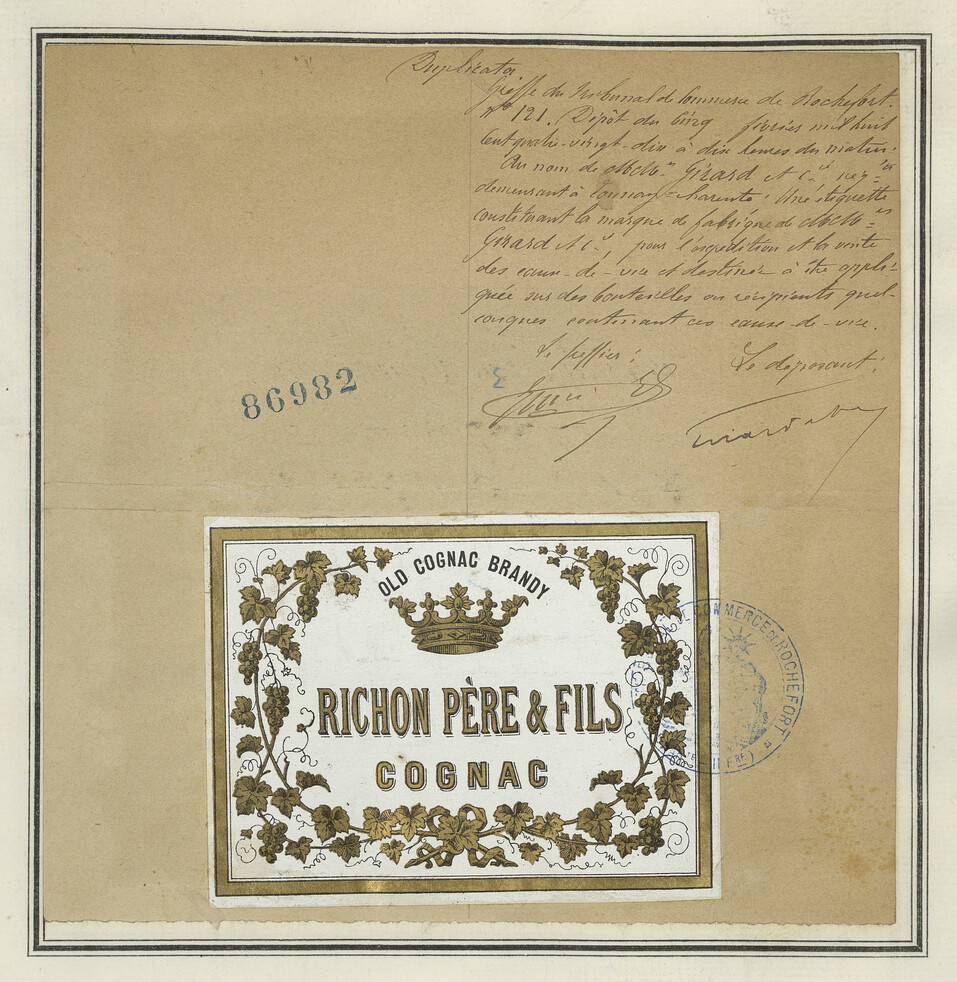 Duplicata
Greffe du Tribunal de Commerce de Rochefort.
N° 121. Dépôt du Cinq février mil huit
Cent quatre-vingt-dix à dix heures du matin.
Au nom de MM Girard et Cie, négts
demeurant à Tonnay-Charente. Une étiquette
constituant la marque de fabrique de MM
Girard et Cie, pour l'expédition et la vente
des eaux-de-vie et destinée à être appli-
quée sur des bouteilles ou récipients quel-
conques contenant ces eaux-de-vie.
Le greffier: Le déposant:
86982
OLD COGNAC BRANDY
RICHON PÈRE & FILS
COGNAC
DE COMMERCE DE ROCHEFORT